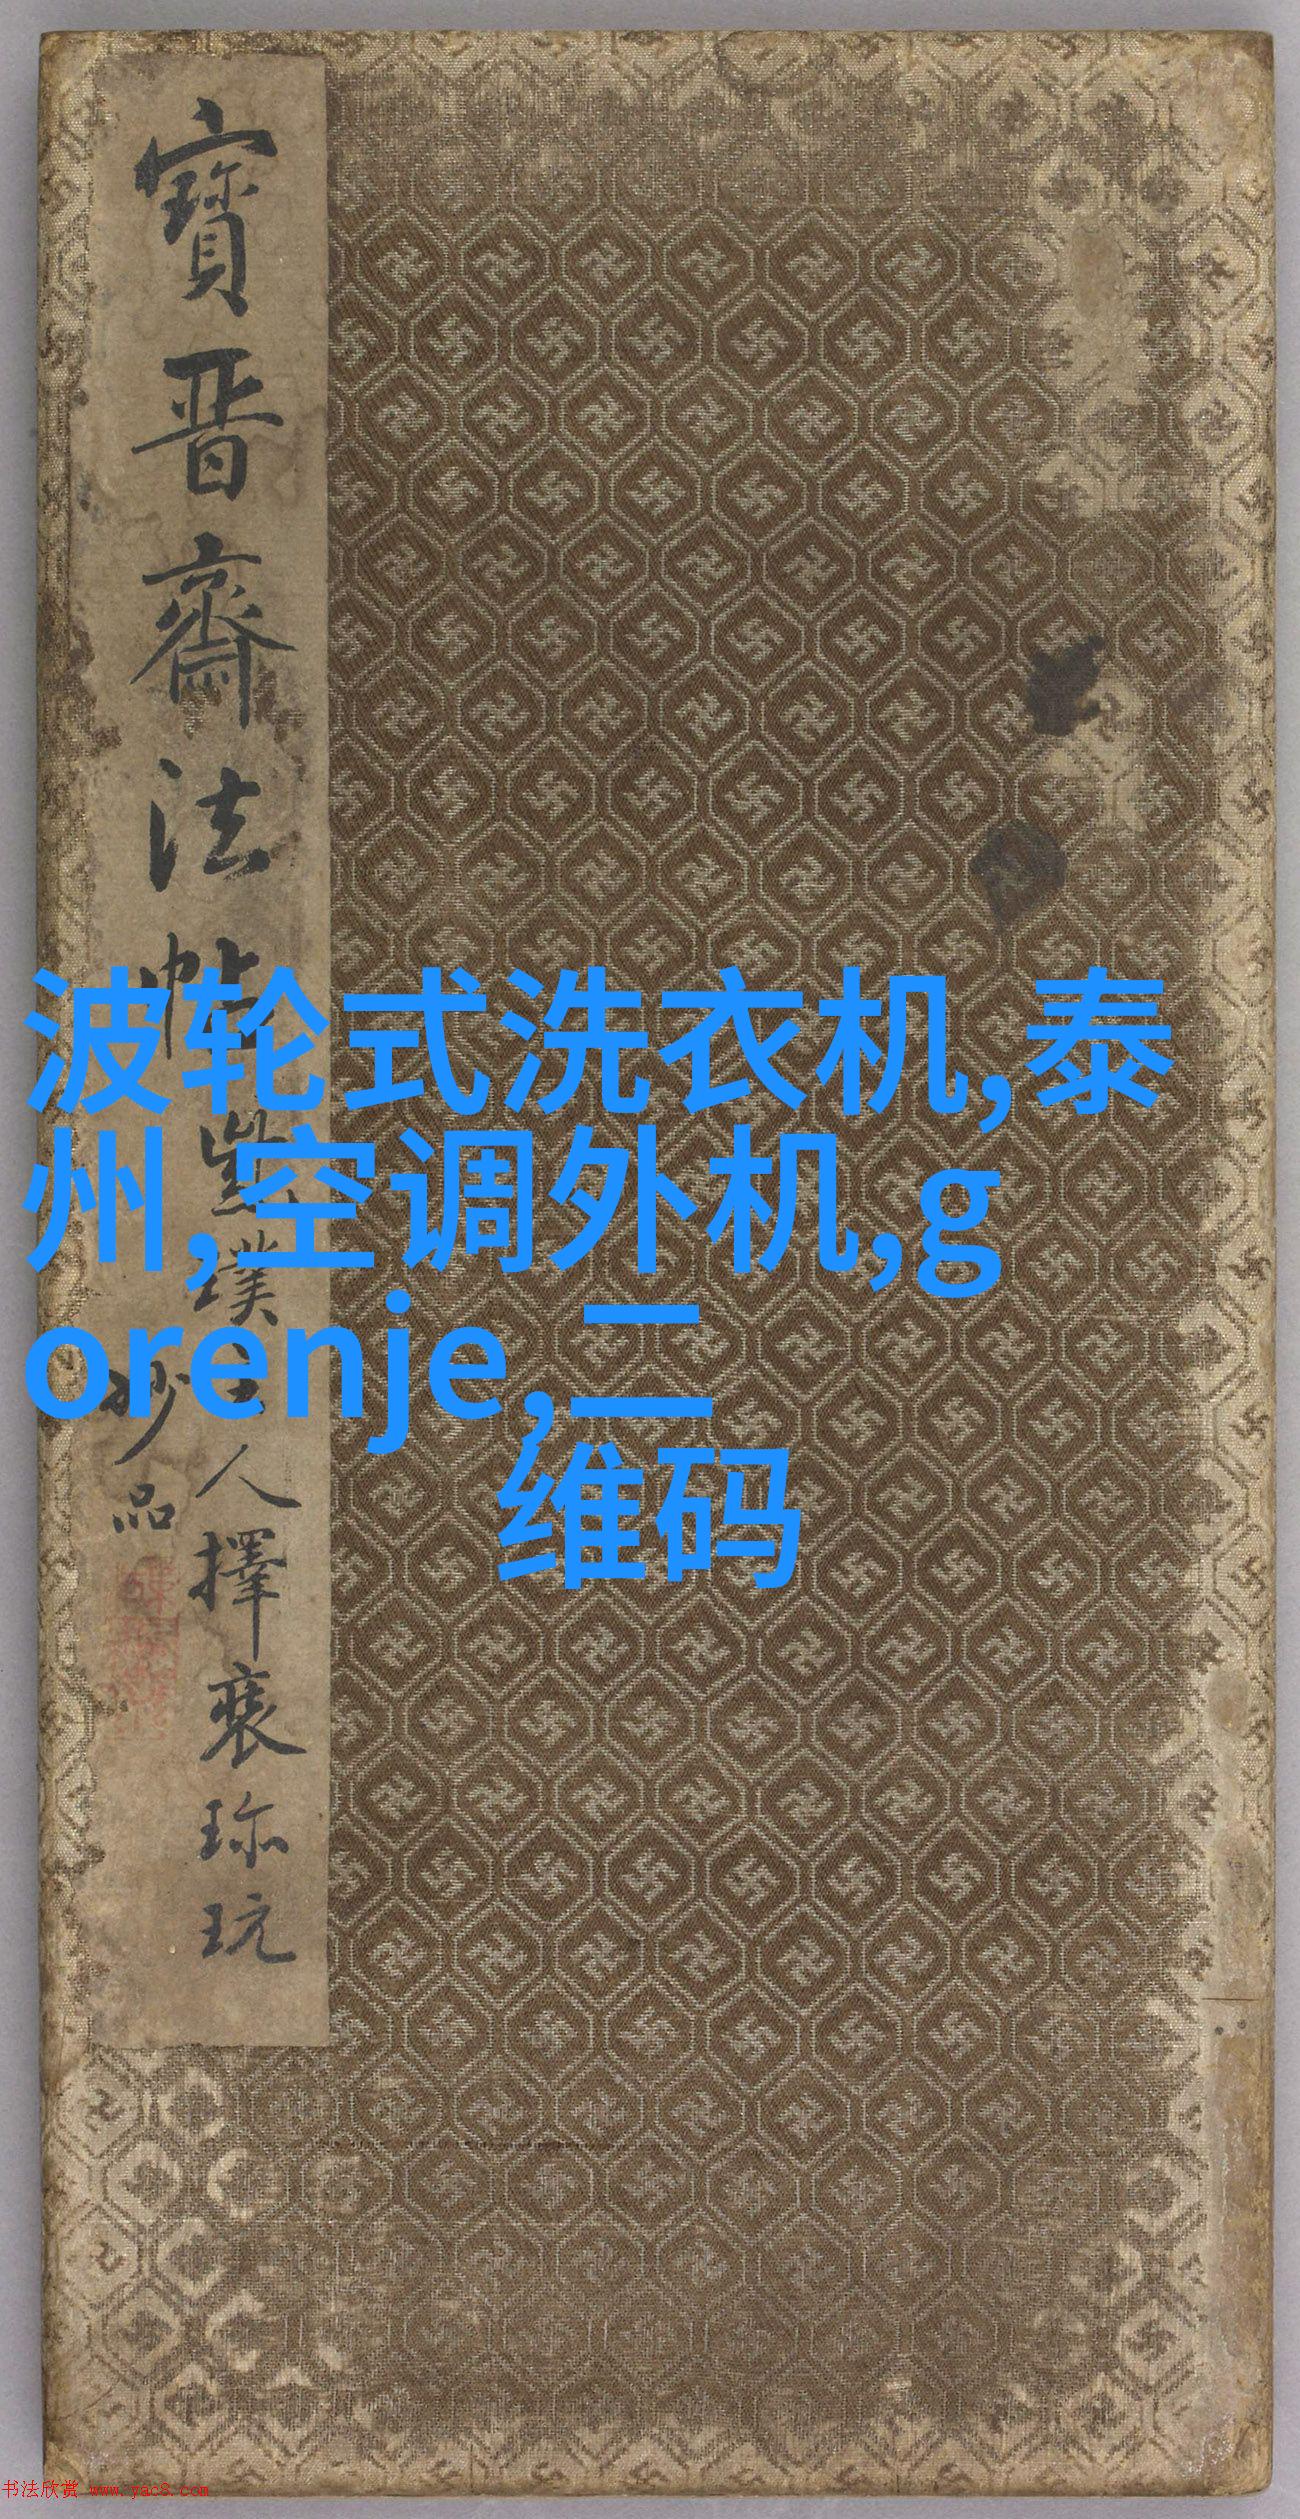 寶晉齋法帖
璞人擇珎玩
妙品
波轮式洗衣机,泰
州,空调外机,g
orenje,二
维码
书法欣赏 www.yac8.com